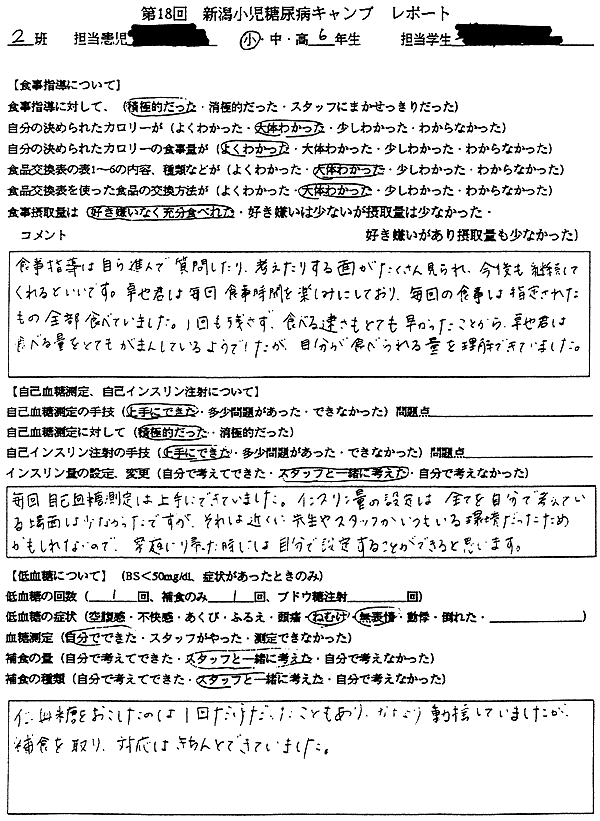 第18回 新潟小児糖尿病キャンプ レポート
2班 担当患児 小・中・高 6年生 担当学生
【食事指導について】
食事指導に対して、(積極的だった・消極的だった・スタッフにまかせっきりだった)
自分の決められたカロリーが(よくわかった・大体わかった・少しわかった・わからなかった)
自分の決められたカロリーの食事量が(よくわかった・大体わかった・少しわかった・わからなかった)
食品交換表の表1~6の内容、種類などが(よくわかった・大体わかった・少しわかった・わからなかった)
食品交換表を使った食品の交換方法が(よくわかった・大体わかった・少しわかった・わからなかった)
食事摂取量は(好き嫌いなく充分食べれた・好き嫌いは少ないが摂取量は少なかった・
コメント 好き嫌いがあり摂取量も少なかった)
食事指導は自ら進んで質問したり、考えたりする面がたくさん見られ、今後も継続して
くれるといいです。卓也君は毎回食事時間を楽しみにしており、毎回の食事は指定された
もの全部食べていました。1回も残さず、食べる速さもとても早かったことから、卓也君は
食べる量をとてもがまんしているようでしたが、自分が食べられる量を理解できていました。
【自己血糖測定、自己インスリン注射について】
自己血糖測定の手技(上手にできた・多少問題があった・できなかった)問題点
自己血糖測定に対して(積極的だった・消極的だった)
自己インスリン注射の手技(上手にできた・多少問題があった・できなかった)問題点
インスリン量の設定、変更(自分で考えてできた・スタッフと一緒に考えた・自分で考えなかった)
毎回自己血糖測定は上手にできていました。インスリン量の設定は全てを自分で考えてい
る場面は少なかったですが、それは近くに先生やスタッフがいつもいる環境だったため
かもしれないので、家庭に帰った時には自分で設定することができると思います。
【低血糖について】(BS<50mg/dl、症状があったときのみ)
低血糖の回数( 1 回、補食のみ 1 回、ブドウ糖注射 回)
低血糖の症状(空腹感・不快感・あくび・ふるえ・頭痛・ねむけ・無表情・動悸・倒れた・ )
血糖測定(自分でできた・スタッフがやった・測定できなかった)
補食の量(自分で考えてできた・スタッフと一緒に考えた・自分で考えなかった)
補食の種類(自分で考えてできた・スタッフと一緒に考えた・自分で考えなかった)
低血糖をおこしたのは1回だけだったこともあり、かなり動揺していましたが、
補食を取り、対応はきちんとできていました。